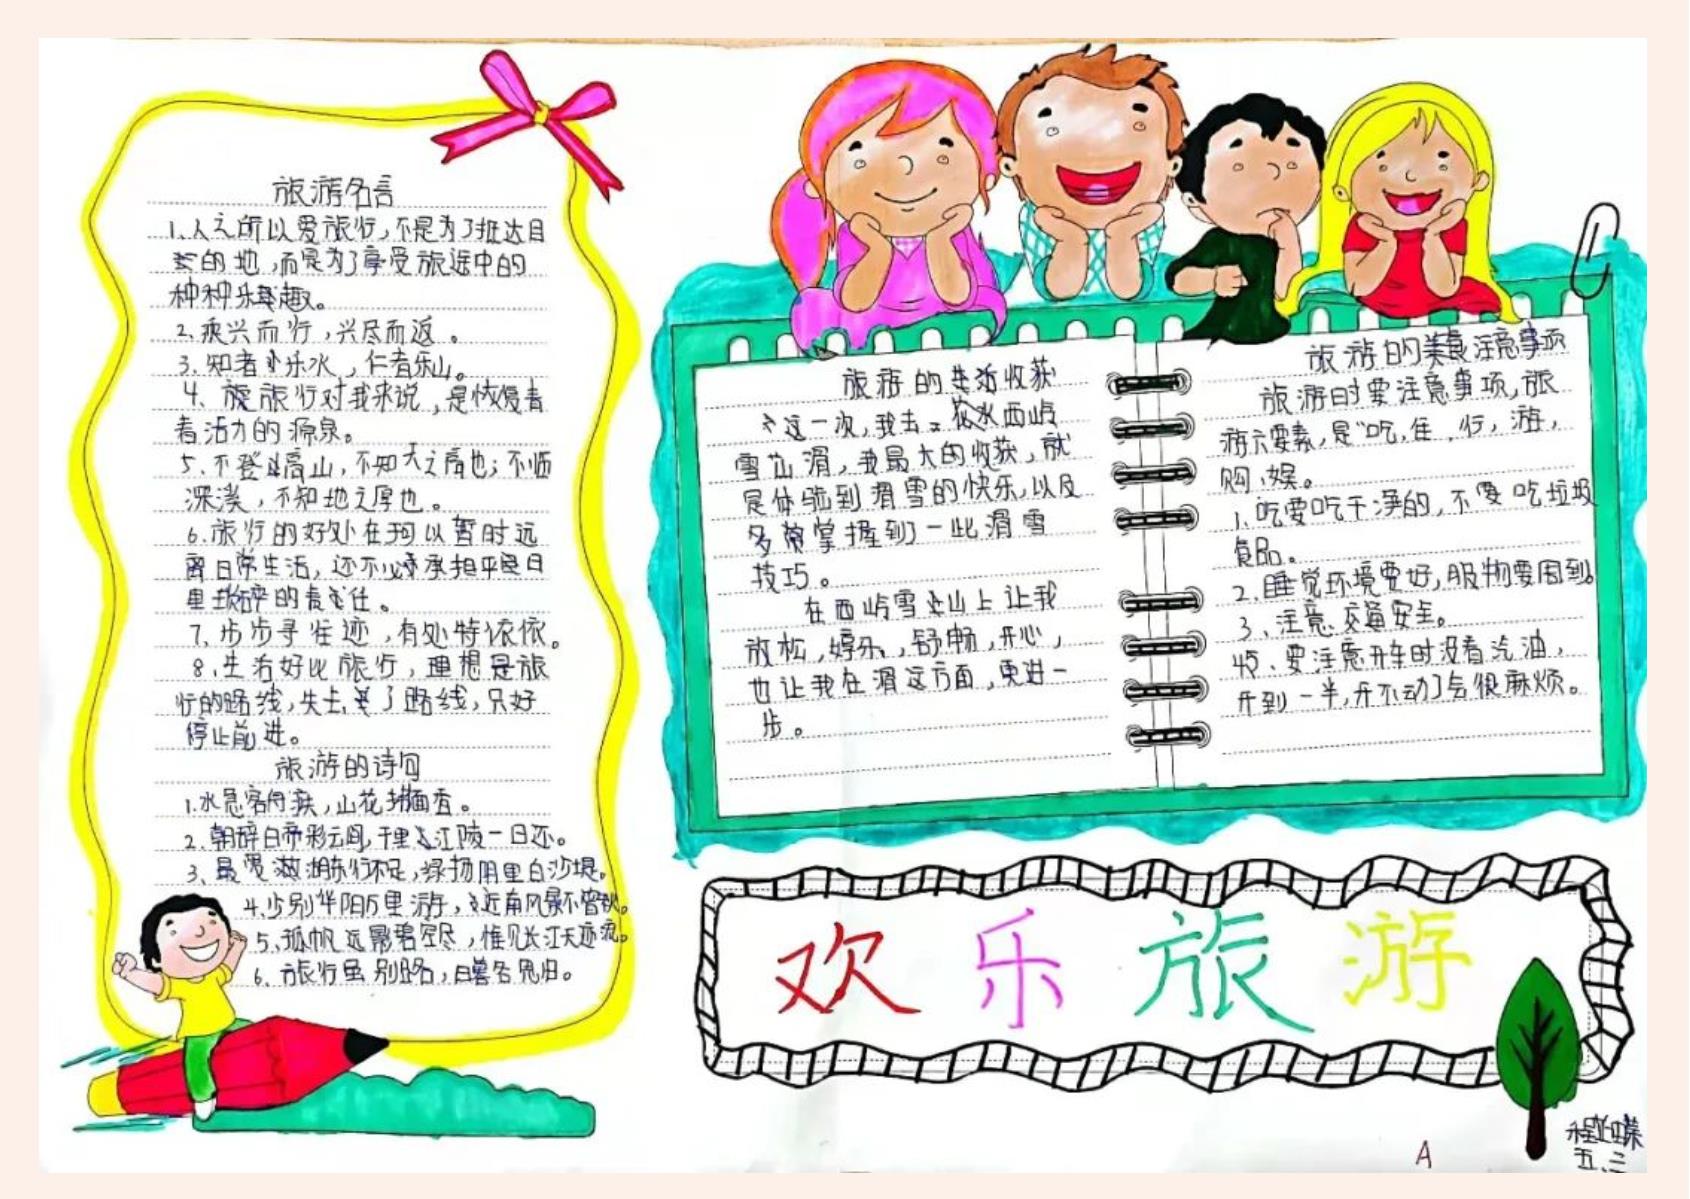 旅游名言
1.人之所以爱旅行,不是为了抵达目
的地,而是为了享受旅途中的
种种乐趣。
2.乘兴而行,兴尽而返。
3.知者乐水,仁者乐山。
4、旅行对我来说,是恢复青
春活力的源泉。
5.不登高山,不知天之高也;不临
深溪,不知地之厚也。
6.旅行的好处在于可以暂时远
离日常生活,还不必承担平是日
里琐碎的责任。
7.步步寻往迹,有处特依依。
8.生活好比旅行,理想是旅
行的路线,失去了路线,只好
停止前进。
旅游的诗句
1.水急客舟疾,山花拂面香。
2.朝辞白帝彩云间,千里江陵一日还。
3、最爱湖东行不足,绿扬阴里白沙堤。
4.少别华阳万里游,近南风景不曾秋。
5、孤帆远影碧空尽,惟见长江天迹流。
6、旅行虽别路,日暮各思归。
旅游的生活收获
这一次,我去西岭
雪山滑,我最大的收获,就
是体验到滑雪的快乐,以及
掌握到了一些滑雪
技巧。
在西岭雪山上让我
放松,娱乐,舒畅,开心,
也让我在滑这方面,更进一
步。
旅游的美食注意事项
旅游时要注意事项,旅
游六要素,是“吃,住,行,游,
购,娱。
1.吃要吃干净的,不要吃垃圾
食品。
2.睡觉环境要好,服物要周到。
3、注意交通安全。
要注意开车时没有汽油,
开到一半,开不动了会很麻烦。
欢乐旅游
A
五.三